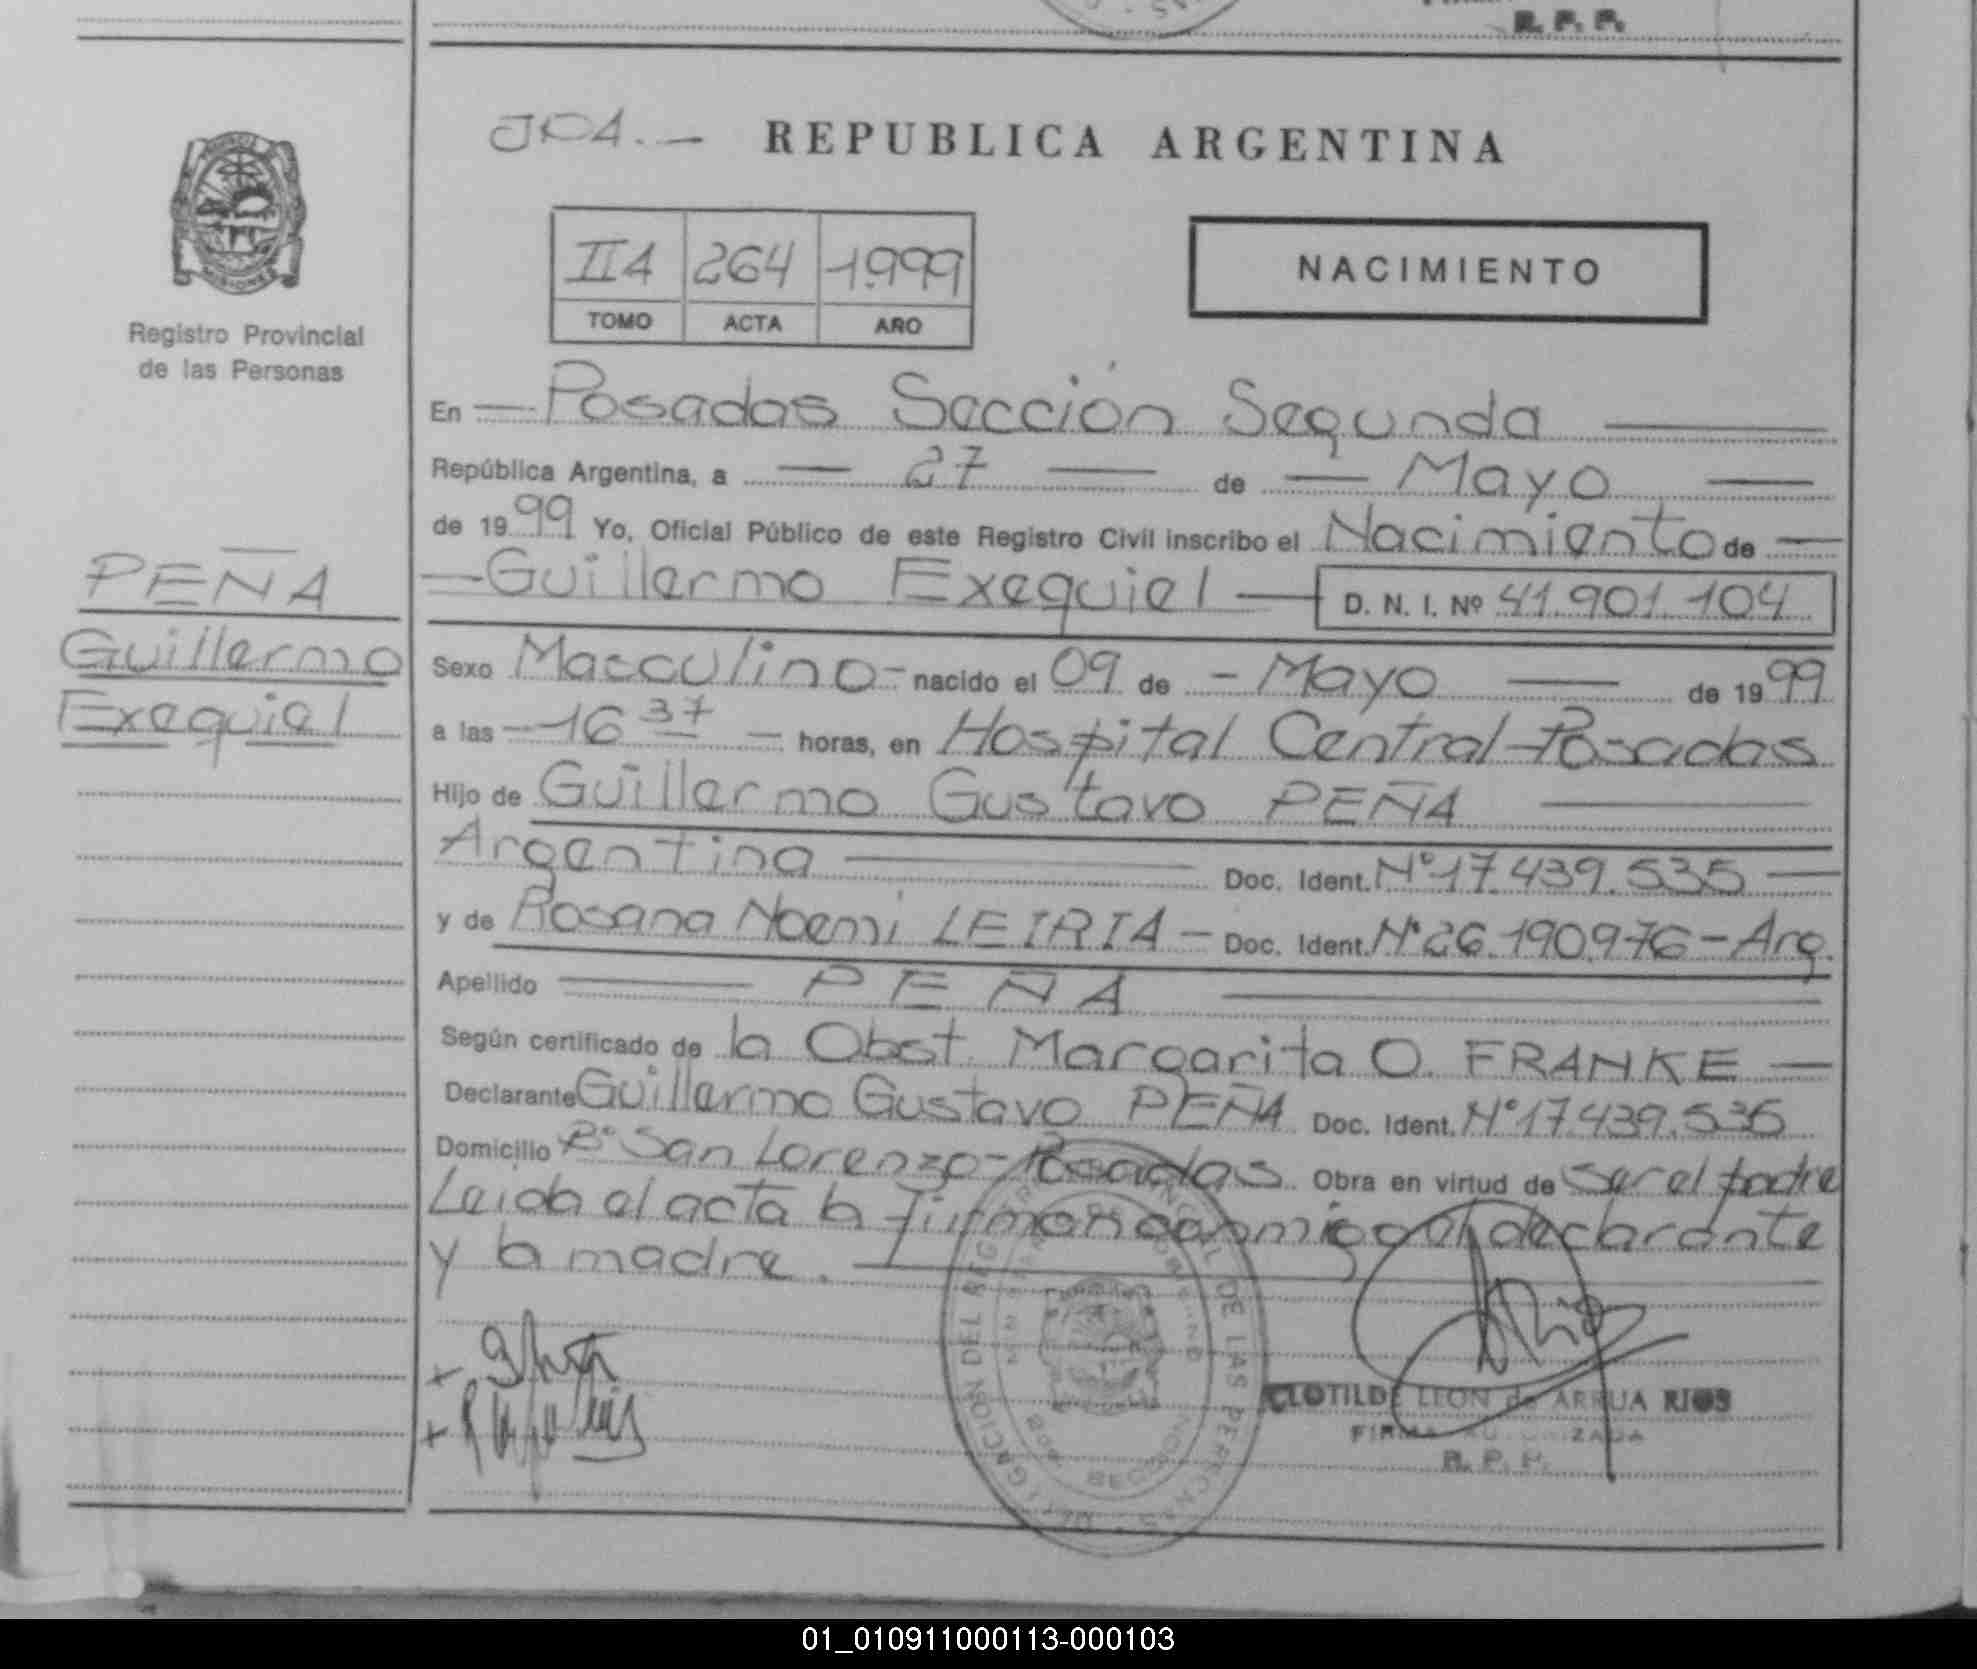 R. P. P.
JCA.— REPUBLICA ARGENTINA
IIA 264 1.999
TOMO ACTA AÑO
NACIMIENTO
Registro Provincial
de las Personas
En — Posadas Sección Segunda —
República Argentina, a — 27 — de — Mayo —
de 1999 Yo, Oficial Público de este Registro Civil inscribo el Nacimiento de —
— Guillermo Exequiel — D. N. I. Nº 41.901.104
PEÑA
Guillermo
Exequiel
Sexo Masculino - nacido el 09 de - Mayo — de 1999
a las — 16 37 — horas, en Hospital Central - Posadas
Hijo de Guillermo Gustavo PEÑA —
Argentina — Doc. Ident. Nº 17.439.535 —
y de Rosana Noemi LEIRIA — Doc. Ident. Nº 26.190.976 - Arg.
Apellido — PEÑA —
Según certificado de la Obst. Margarita O. FRANKE —
Declarante Guillermo Gustavo PEÑA Doc. Ident. Nº 17.439.535
Domicilio Bº San Lorenzo - Posadas. Obra en virtud de ser el padre
Leida el acta la firman conmigo el declarante
y la madre. —
DELEGACION DEL REGISTRO PROVINCIAL DE LAS PERSONAS
CLOTILDE LEON de ARRUA RIOS
FIRMA AUTORIZADA
R. P. P.
01_010911000113-000103